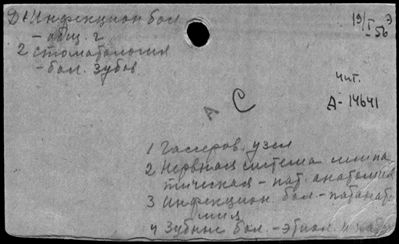 Д 1 Инфекцион бол
- общ. г
2 стоматология
- бол. зубов
19/I - 56 Э
чит.
Д-14641
А С
1 Гассеров. узел
2 Нервная система симпа
тическая - пат. анатомия
3 Инфекцион бол. - патанато
мия
4 Зубные бол. - этиол. и